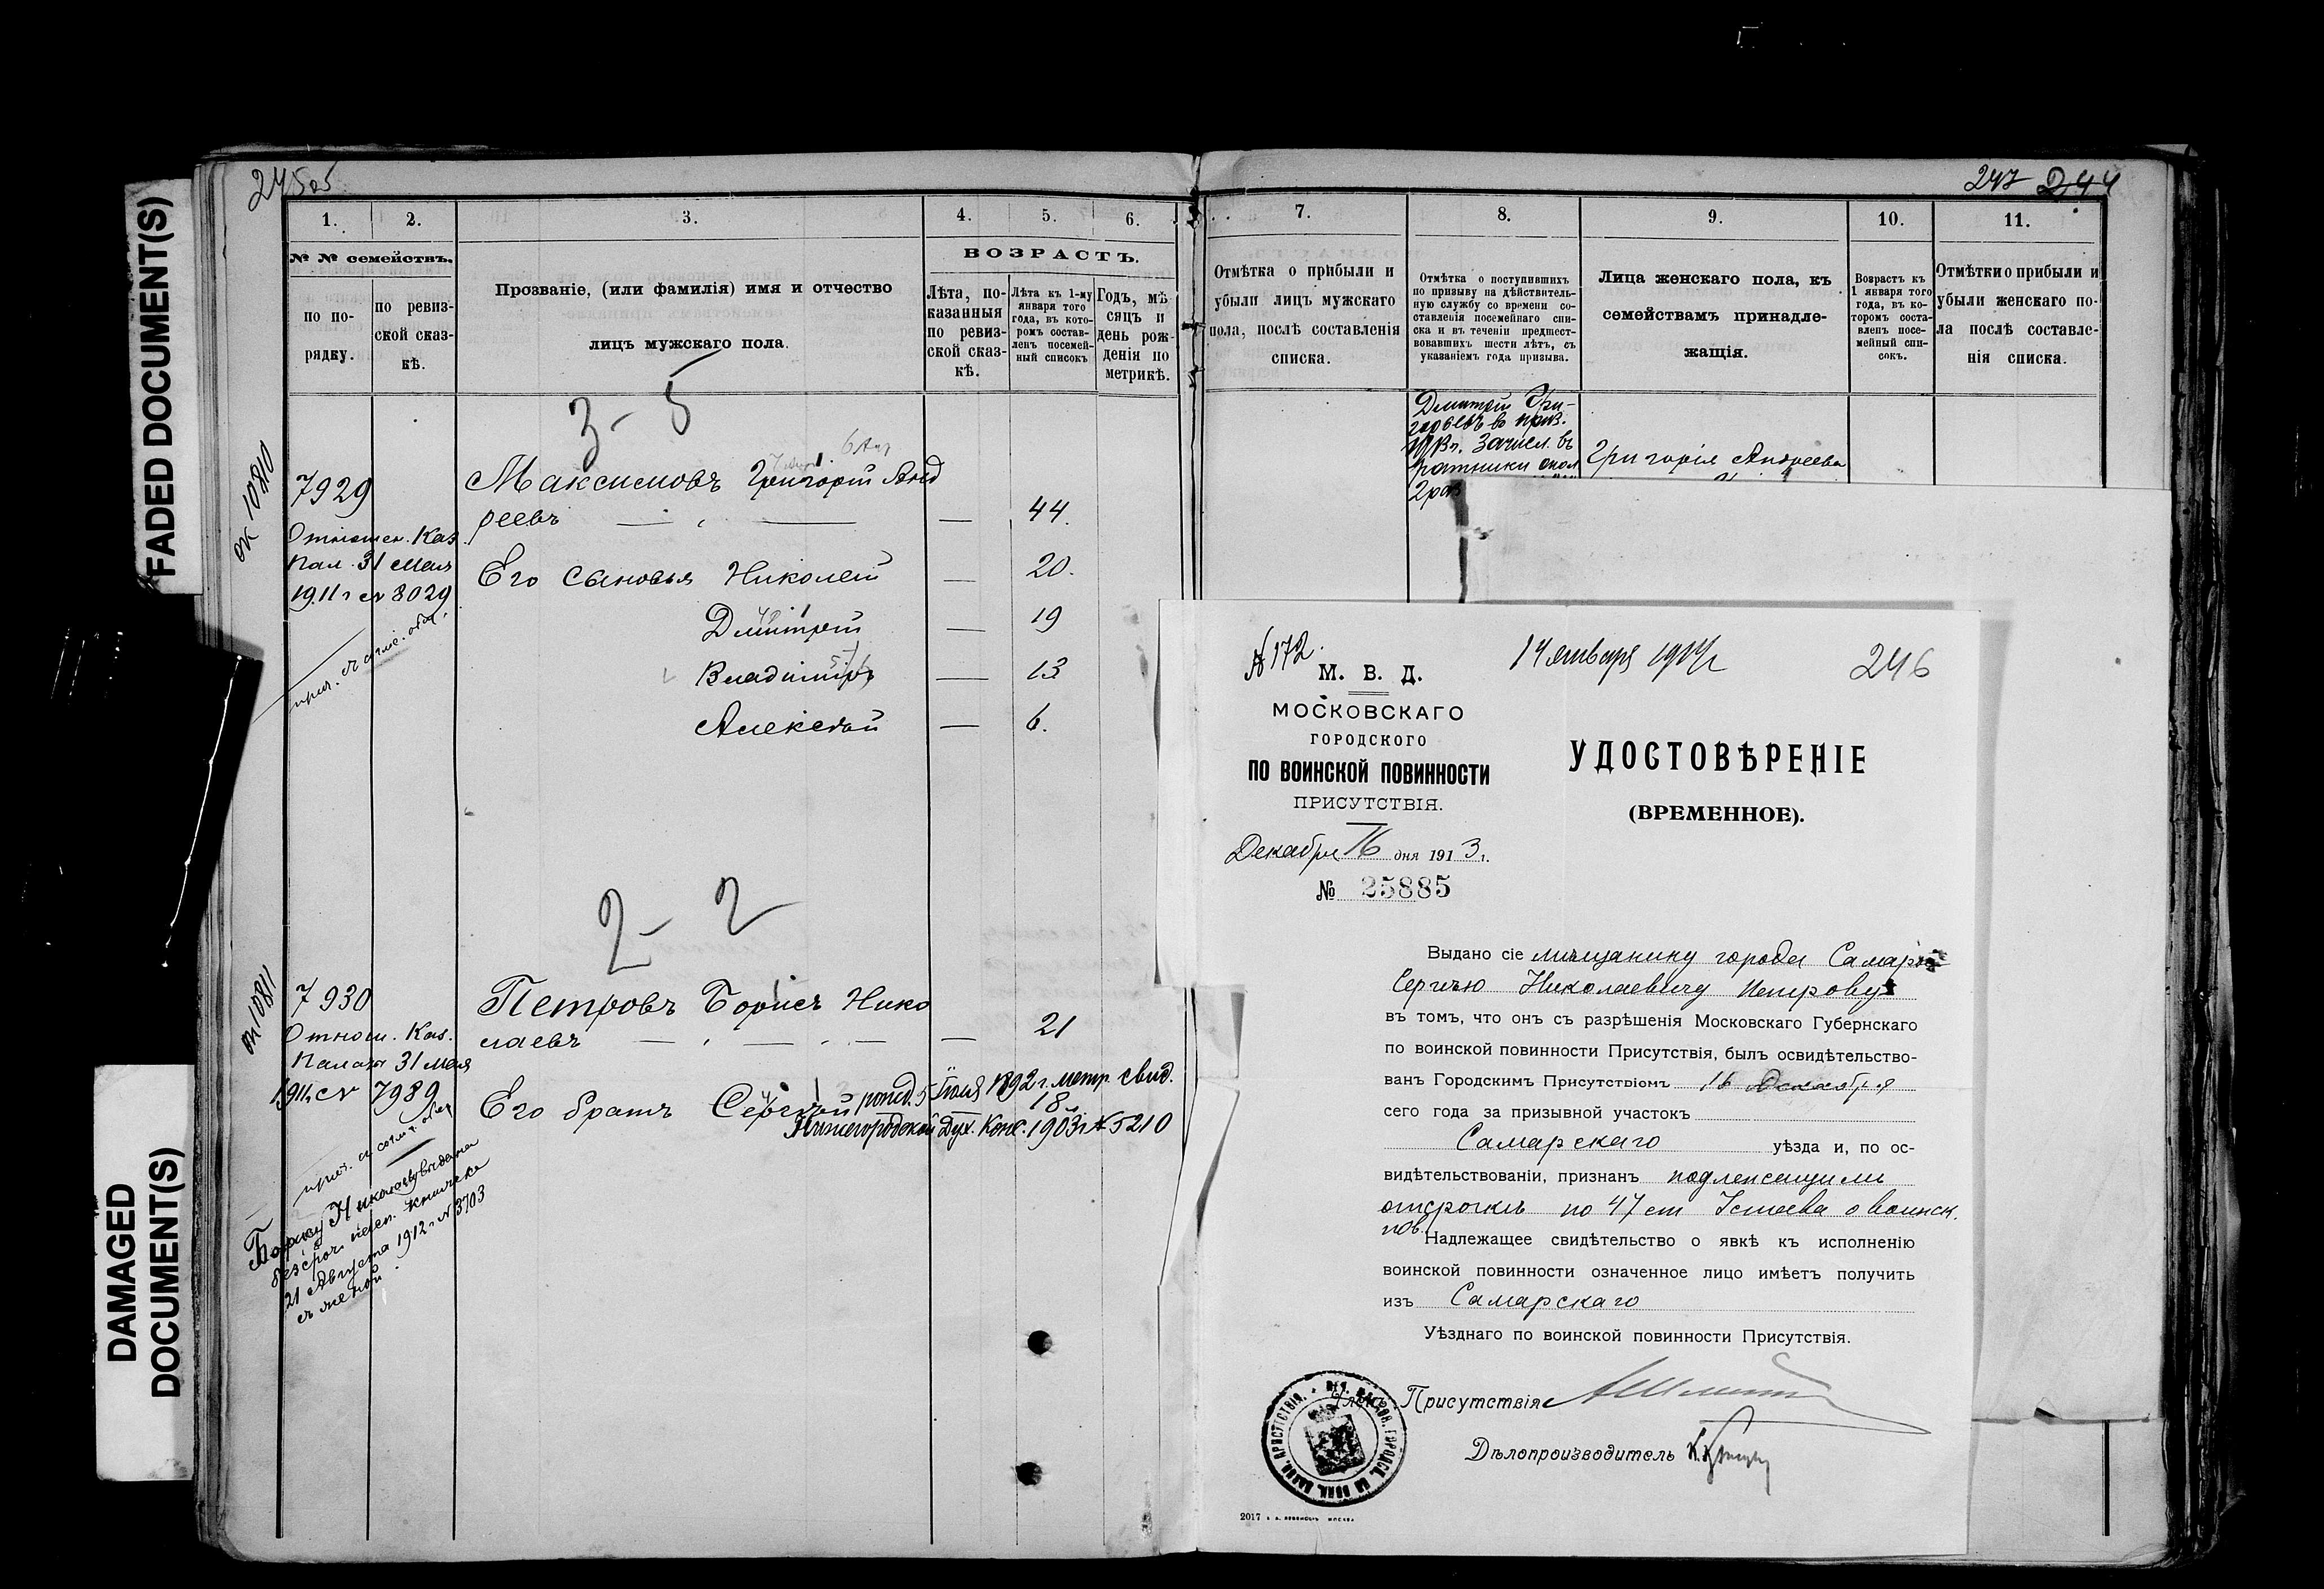 FADED DOCUMENT(S)
DAMAGED
DOCUMENT(S)
247 244
1. 2. 3. 4. 5. 6.
№ № семействъ.
по по-
рядку.
по ревиз-
ской сказ-
кѣ.
Прозваніе, (или фамилія) имя и отчество
лицъ мужскаго пола.
ВОЗРАСТЪ.
Лѣта, по-
казанныя
по ревиз-
ской сказ-
кѣ.
Лѣта къ 1-му
января того
года, въ кото-
ромъ состав-
ленъ посемей-
ный списокъ
Годъ, мѣ
сяцъ и
день рож-
денія по
метрикѣ.
3-5
ок 10810
7929
Максимовъ Григорій Анд
реевъ — 44.
Отношен. Каз.
Пал. 31 мая
1911 г № 8029
Его сыновья Николай — 20.
Дмитрій — 19
Владиміръ — 13
Алексѣй — 6.
2-2
ок 10811
7930
Петровъ Борисъ Нико
лаевъ — 21
Отнош. Каз.
Палаты 31 мая
1911 г № 7989
Его братъ Сергѣй рожд. 5 Іюля 1892 г. метр. свид.
18
Нижегородской Дух. Конс. 1903 г № 5210
Борису Николаеву выдана
безсроч. книжка
21 Августа 1912 г № 3703
7. 8. 9. 10. 11.
Отмѣтка о прибыли и
убыли лицъ мужскаго
пола, послѣ составленія
списка.
Отмѣтка о поступившихъ
по призыву на дѣйствитель-
ную службу со времени со-
ставленія посемейнаго спи-
ска и въ теченіи предшест-
вовавшихъ шести лѣтъ, съ
указаніемъ года призыва.
Лица женскаго пола, къ
семействамъ принадле-
жащія.
Возрастъ къ
1 января того
года, въ ко-
торомъ соста-
вленъ посе-
мейный спи-
сокъ.
Отмѣтки о прибыли и
убыли женскаго по-
ла послѣ составле-
нія списка.
Дмитрій Гри-
горьевъ въ приз.
зачисл. въ
ратники опол
Григорія Андреева
№ 172.
14 января 1914 г
246
М. В. Д.
МОСКОВСКАГО
ГОРОДСКОГО
ПО ВОИНСКОЙ ПОВИННОСТИ
ПРИСУТСТВІЯ.
Декабря 16 дня 1913 г.
№ 25885
УДОСТОВѢРЕНІЕ
(ВРЕМЕННОЕ).
Выдано сіе мѣщанину города Самары
Сергѣю Николаевичу Петрову
въ томъ, что онъ съ разрѣшенія Московскаго Губернскаго
по воинской повинности Присутствія, былъ освидѣтельство-
ванъ Городскимъ Присутствіемъ 16 декабря
сего года за призывной участокъ
Самарскаго уѣзда и, по ос-
видѣтельствованіи, признанъ подлежащимъ
отсрочкѣ по 47 ст Устава о воинск.
пов.
Надлежащее свидѣтельство о явкѣ къ исполненію
воинской повинности означенное лицо имѣетъ получить
изъ Самарскаго
Уѣзднаго по воинской повинности Присутствія.
Присутствія
Дѣлопроизводитель
2017